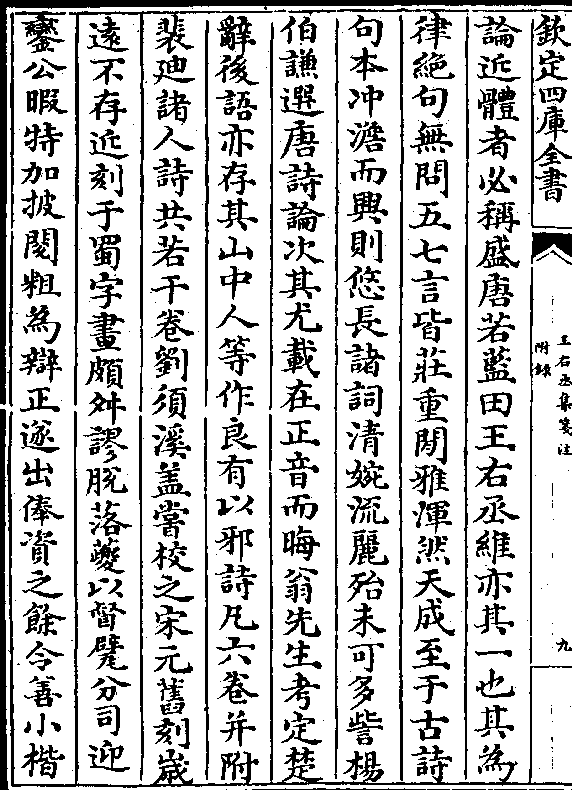 欽定四庫全書
王右丞集箋注
附錄
九
論近體者必稱盛唐若藍田王右丞維亦其一也其為
律絶句無問五七言皆莊重閒雅渾然天成至于古詩
句本冲澹而興則悠長諸詞清婉流麗殆未可多訾楊
伯謙選唐詩論次其尤載在正音而晦翁先生考定楚
辭後語亦存其山中人等作良有以邪詩凡六卷并附
裴廸諸人詩共若干卷劉須溪盖嘗校之宋元舊刻歲
遠不存近刻于蜀字畫頗舛謬脱落夔以督甓分司迎
鑾公暇特加披閱粗為辯正遂出俸資之餘令善小楷